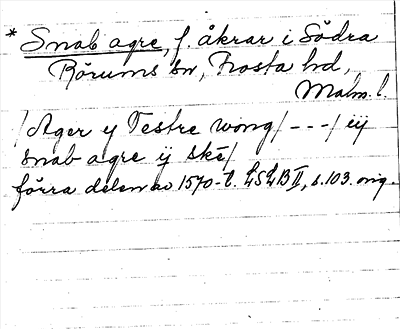 * Snab agre, f. åkrar i Södra
Rörums sn, Frosta hd,
Malm. l.
/Ager y Vestre wong/ - - - / ij
snab agre ij ske/
förra delen av 1570-t. LSLB II, s. 103. orig.